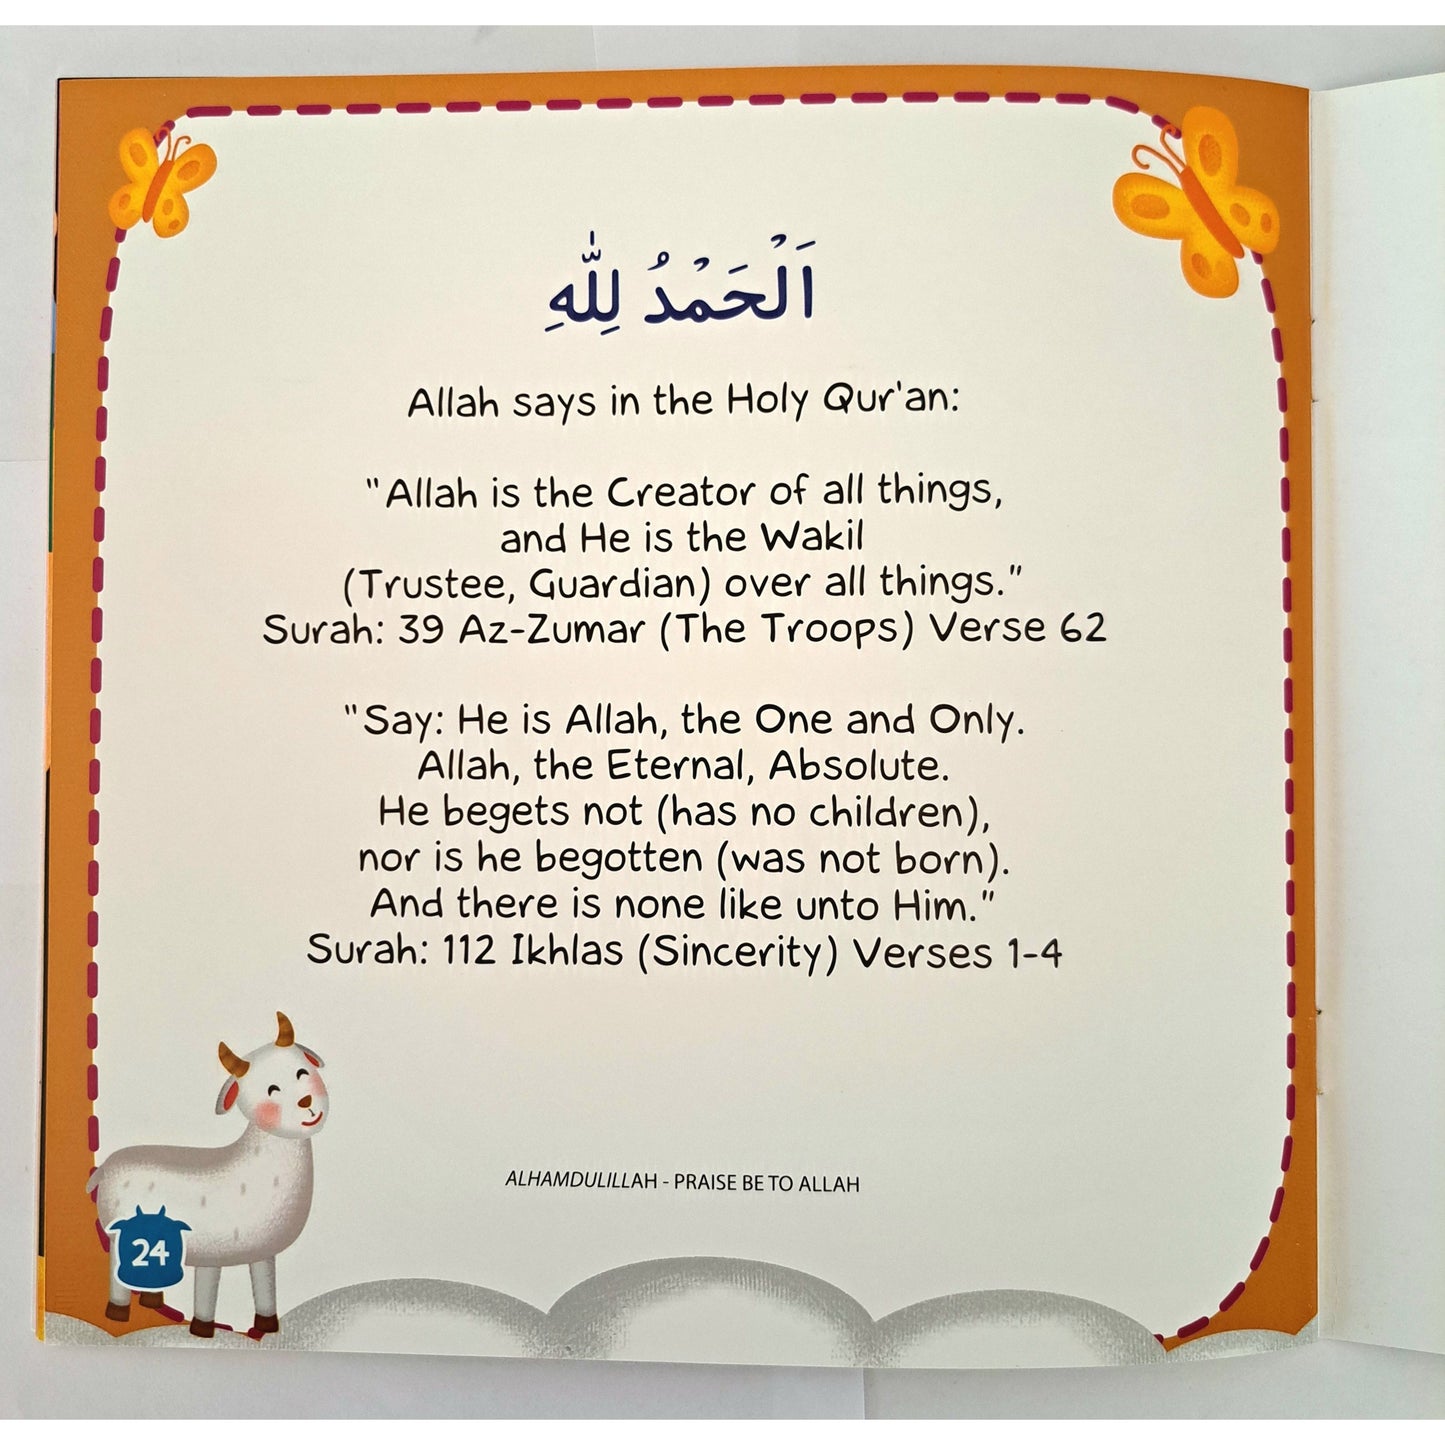 اَلْحَمْدُ لِلّٰهِ
Allah says in the Holy Qur'an:
"Allah is the Creator of all things,
and He is the Wakil
(Trustee, Guardian) over all things."
Surah: 39 Az-Zumar (The Troops) Verse 62
"Say: He is Allah, the One and Only.
Allah, the Eternal, Absolute.
He begets not (has no children),
nor is he begotten (was not born).
And there is none like unto Him."
Surah: 112 Ikhlas (Sincerity) Verses 1-4
ALHAMDULILLAH - PRAISE BE TO ALLAH
24